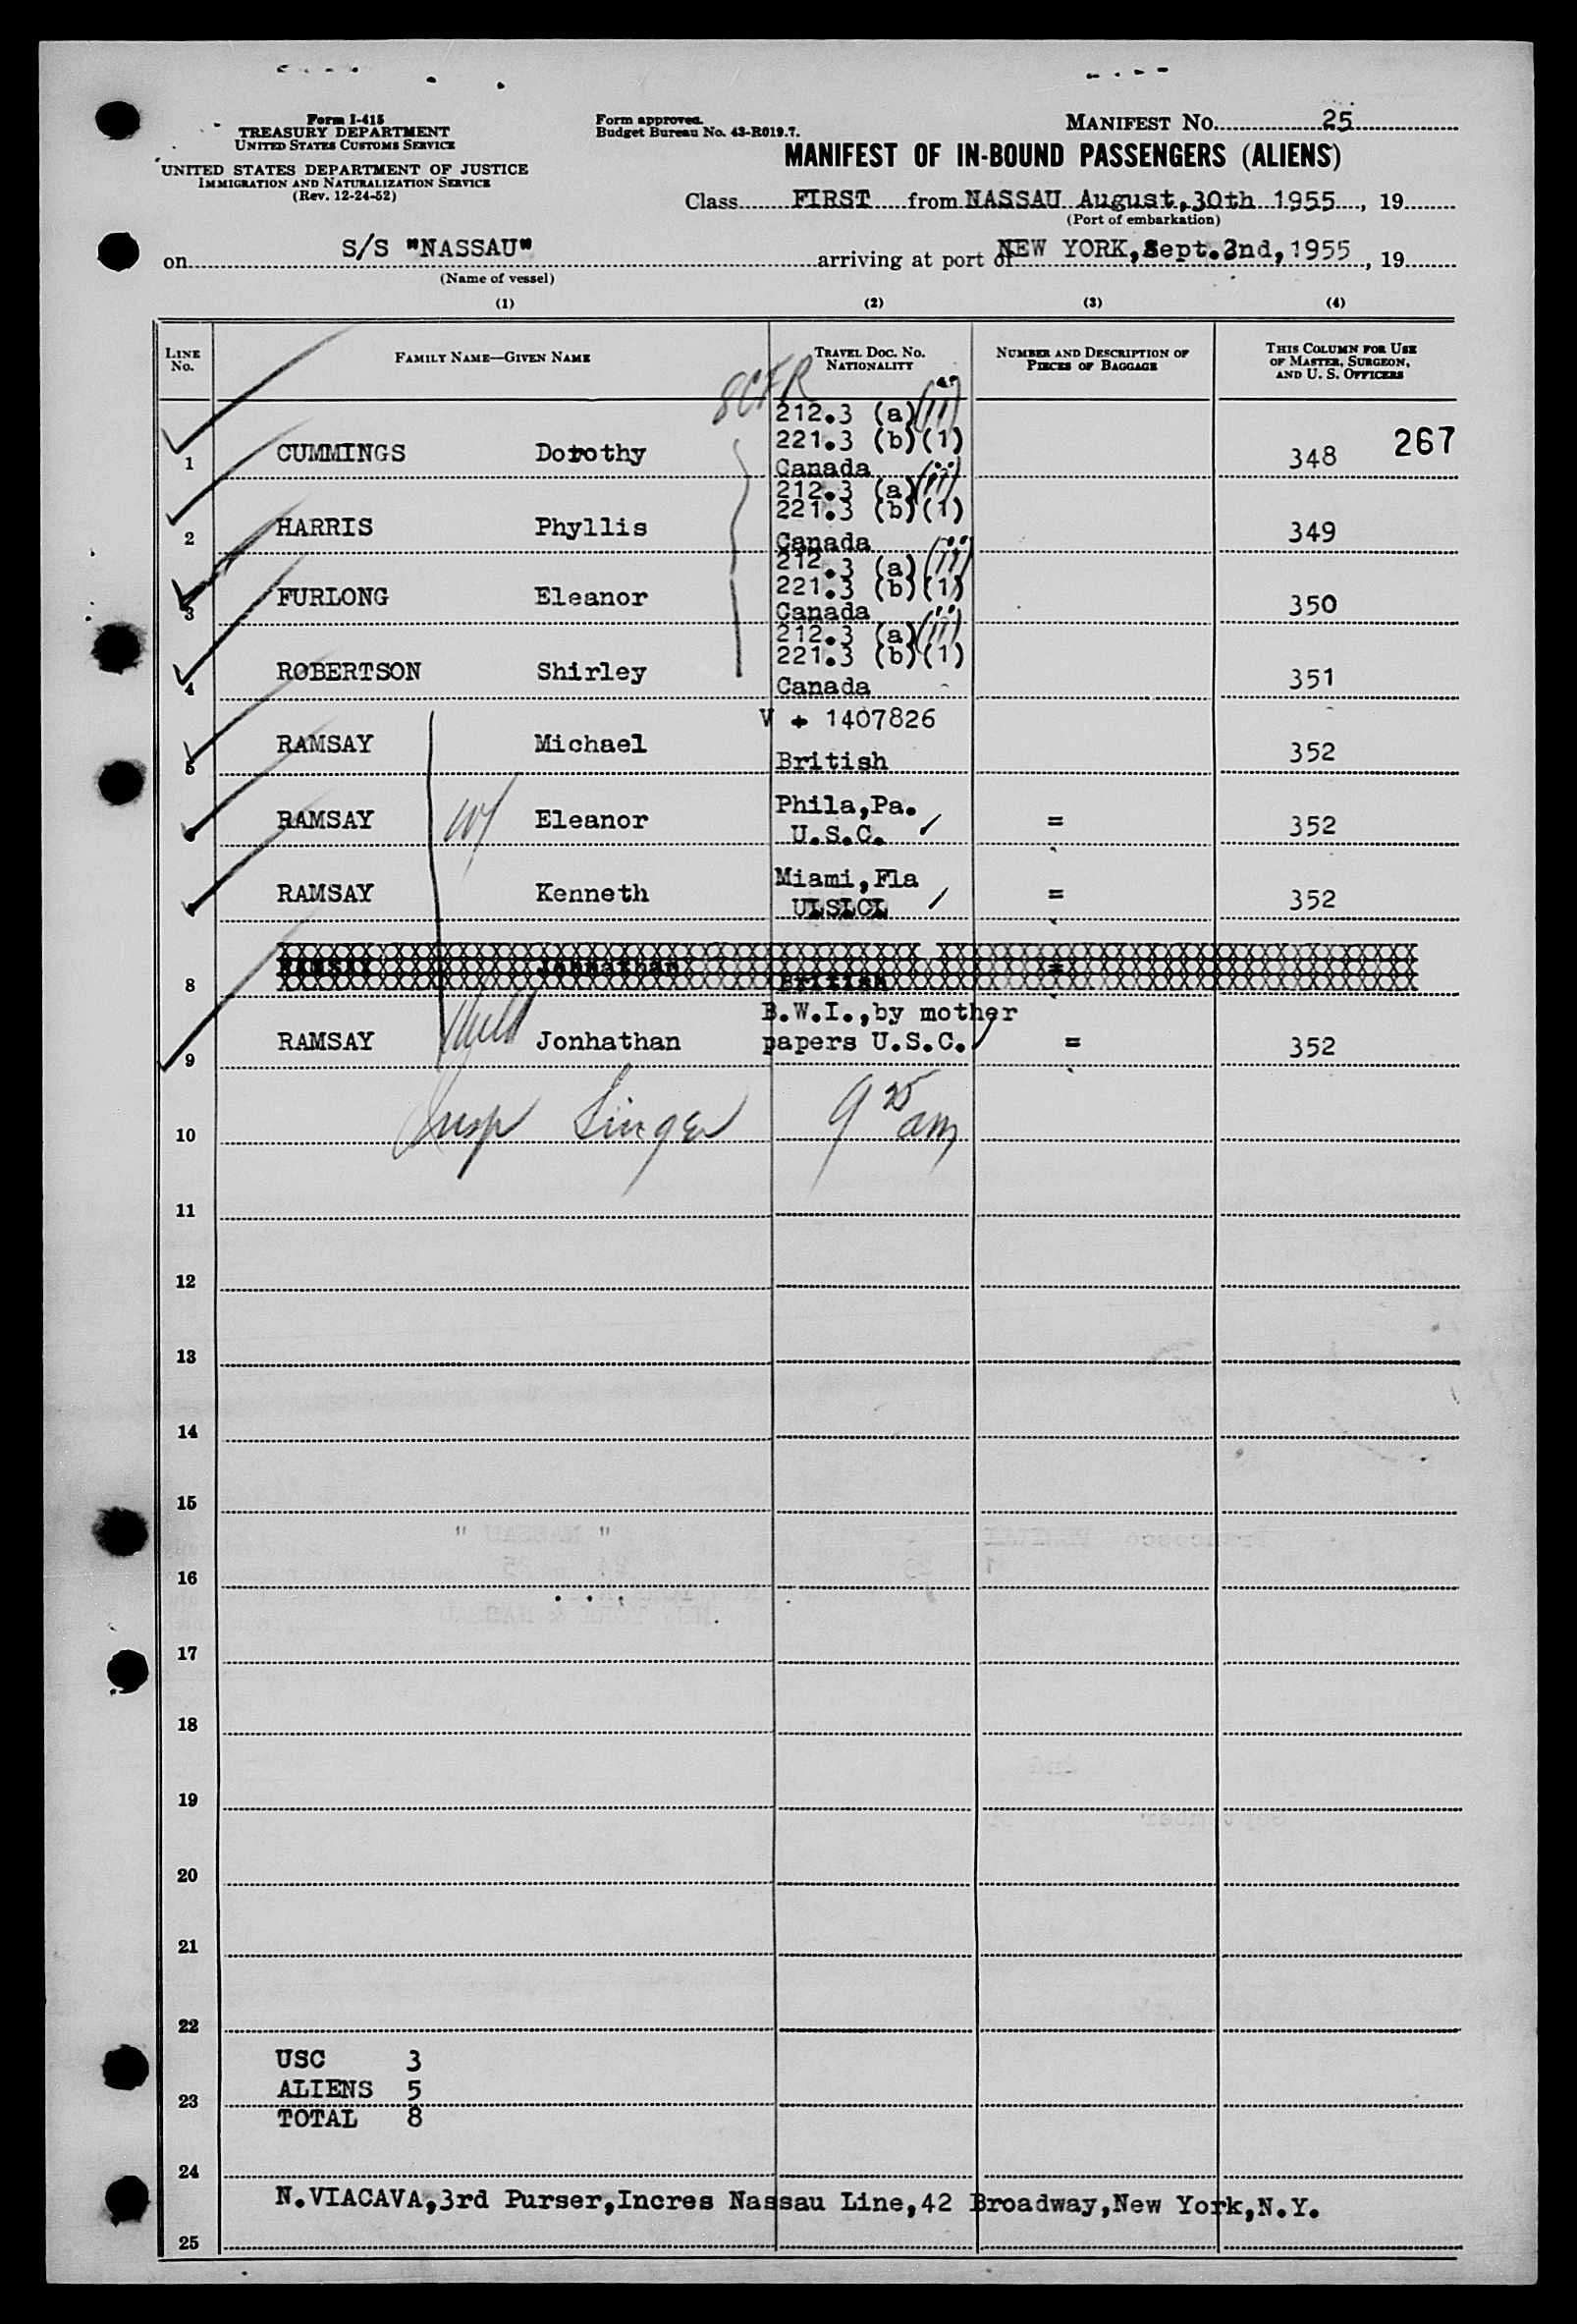 Form I-415
TREASURY DEPARTMENT
UNITED STATES CUSTOMS SERVICE
UNITED STATES DEPARTMENT OF JUSTICE
IMMIGRATION AND NATURALIZATION SERVICE
(Rev. 12-24-52)
Form approved.
Budget Bureau No. 43-R019.7.
MANIFEST NO. 25
MANIFEST OF IN-BOUND PASSENGERS (ALIENS)
Class FIRST from NASSAU August,30th 1955, 19
(Port of embarkation)
on S/S "NASSAU" arriving at port of NEW YORK,Sept.2nd,1955, 19
(Name of vessel)
(1) (2) (3) (4)
LINE NO. FAMILY NAME—GIVEN NAME TRAVEL DOC. NO. NATIONALITY NUMBER AND DESCRIPTION OF PIECES OF BAGGAGE THIS COLUMN FOR USE OF MASTER, SURGEON, AND U. S. OFFICERS
8CFR
212.3 (a)(ii)
221.3 (b)(1)
1 CUMMINGS Dorothy Canada 348 267
212.3 (a)(ii)
221.3 (b)(1)
2 HARRIS Phyllis Canada 349
212.3 (a)(ii)
221.3 (b)(1)
3 FURLONG Eleanor Canada 350
212.3 (a)(ii)
221.3 (b)(1)
4 ROBERTSON Shirley Canada 351
V + 1407826
5 RAMSAY Michael British 352
Phila,Pa.
RAMSAY Eleanor U.S.C. = 352
Miami,Fla
RAMSAY Kenneth = 352
8 RAMSAY Johnathan British =
B.W.I.,by mother
9 RAMSAY Jonhathan papers U.S.C. = 352
Insp Singer 9 25 am
10
11
12
13
14
15
16
17
18
19
20
21
22
USC 3
ALIENS 5
23
TOTAL 8
24
N.VIACAVA,3rd Purser,Incres Nassau Line,42 Broadway,New York,N.Y.
25